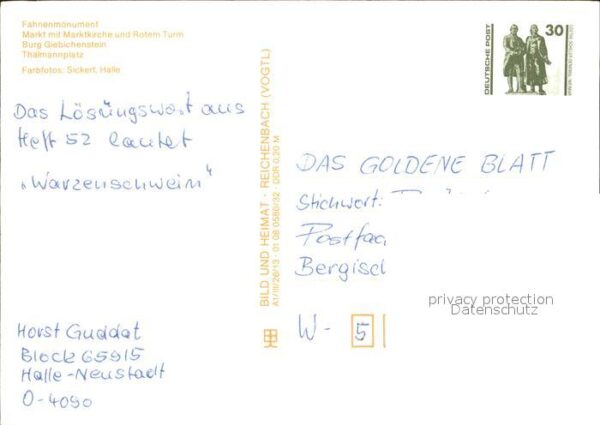 Fahnenmonument
Markt mit Marktkirche und Rotem Turm
Burg Giebichenstein
Thälmannplatz
Farbfotos: Sickert, Halle
Das Lösungswort aus
Heft 52 lautet
„Warzenschwein"
Horst Guddat
Block 659/5
Halle-Neustadt
O-4090
BILD UND HEIMAT · REICHENBACH (VOGTL)
A1/III/26/13 · 01 08 0580/32 · DDR 0,20 M
DEUTSCHE POST
30
DAS GOLDENE BLATT
Stichwort:
Postfac
Bergisc
W- 5
privacy protection
Datenschutz